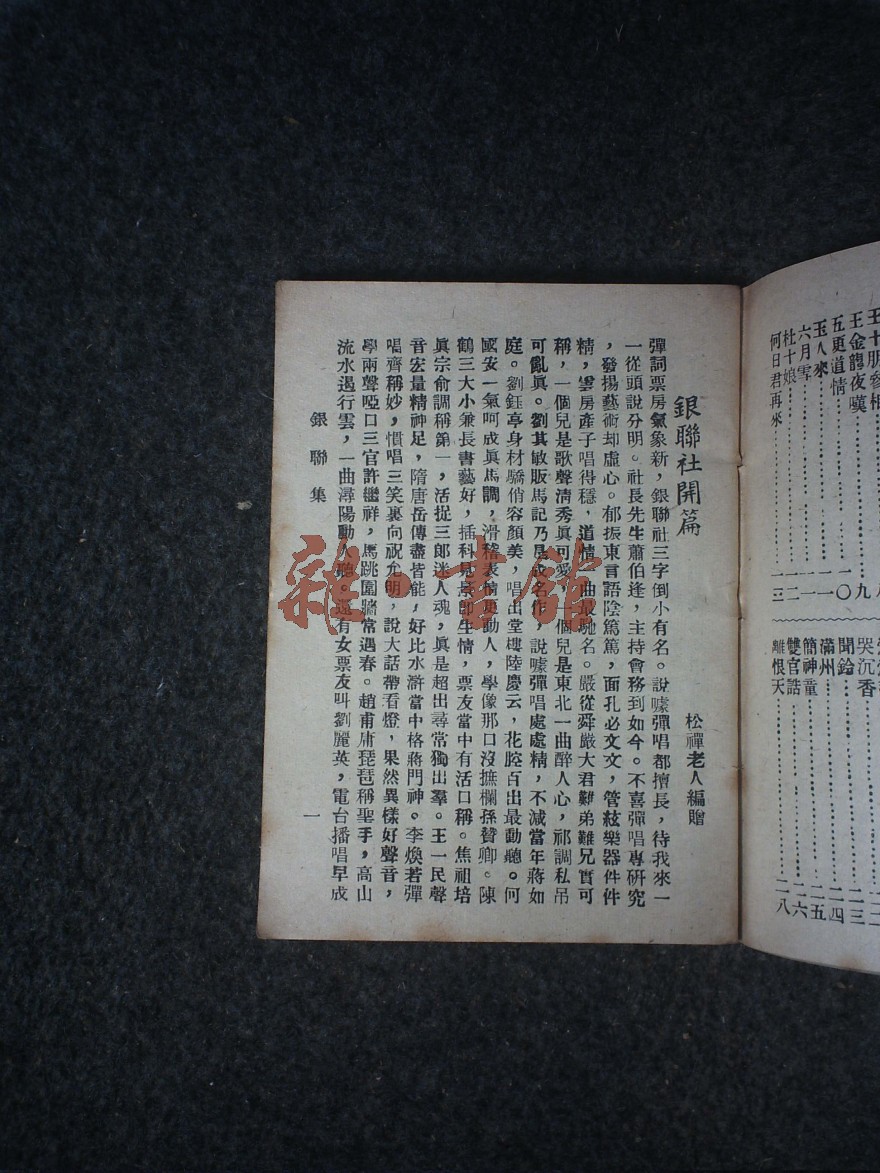 銀聯社開篇
松禪老人編贈
彈詞票房氣象新，銀聯社三字倒小有名。說噱彈唱都擅長，待我來一
一從頭說分明。社長先生蕭伯逢，主持會務到如今。不喜彈唱專研究
，發揚藝術却虛心。郁振東言語陰篤篤，面孔必文文，管絃樂器件件
精，雲房產子唱得穩，道情一曲最馳名。嚴從舜嚴大君難弟難兄實可
稱，一個兒是歌聲清秀眞可愛，一個兒是東北一曲醉人心，祁調私吊
可亂眞。劉其敏販馬記乃是成名作，說噱彈唱處處精，不減當年蔣如
庭。劉鈺亭身材驕俏容顏美，唱出堂樓陸慶云，花腔百出最動聽。何
國安一氣呵成眞馬調，滑稽表情更動人，學像那口沒撫欄孫贊卿。陳
鶴三大小兼長書藝好，插科見景卽生情，票友當中有活口稱。焦祖培
眞宗俞調稱第一，活捉三郎迷人魂，眞是超出尋常獨出羣。王一民聲
音宏量精神足，隋唐岳傳盡皆能，好比水滸當中格蔣門神。李煥若彈
唱齊稱妙，慣唱三笑裏向祝允明，說大話帶看燈，果然異樣好聲音，
學兩聲啞口三官許繼祥，馬跳圍牆常遇春。趙甫庸琵琶稱聖手，高山
流水遏行雲，一曲潯陽動人聽。還有女票友叫劉麗英，電台播唱早成
銀聯集
一
王金龍夜嘆………九
五更道情………一〇
玉人來………一一
六月雪………一一
杜十娘………一二
何日君再來………一三
哭沉香………二三
聞鈴………二四
滿州………二五
簡神童………二六
雙官誥
離恨天………二八
雜·書館